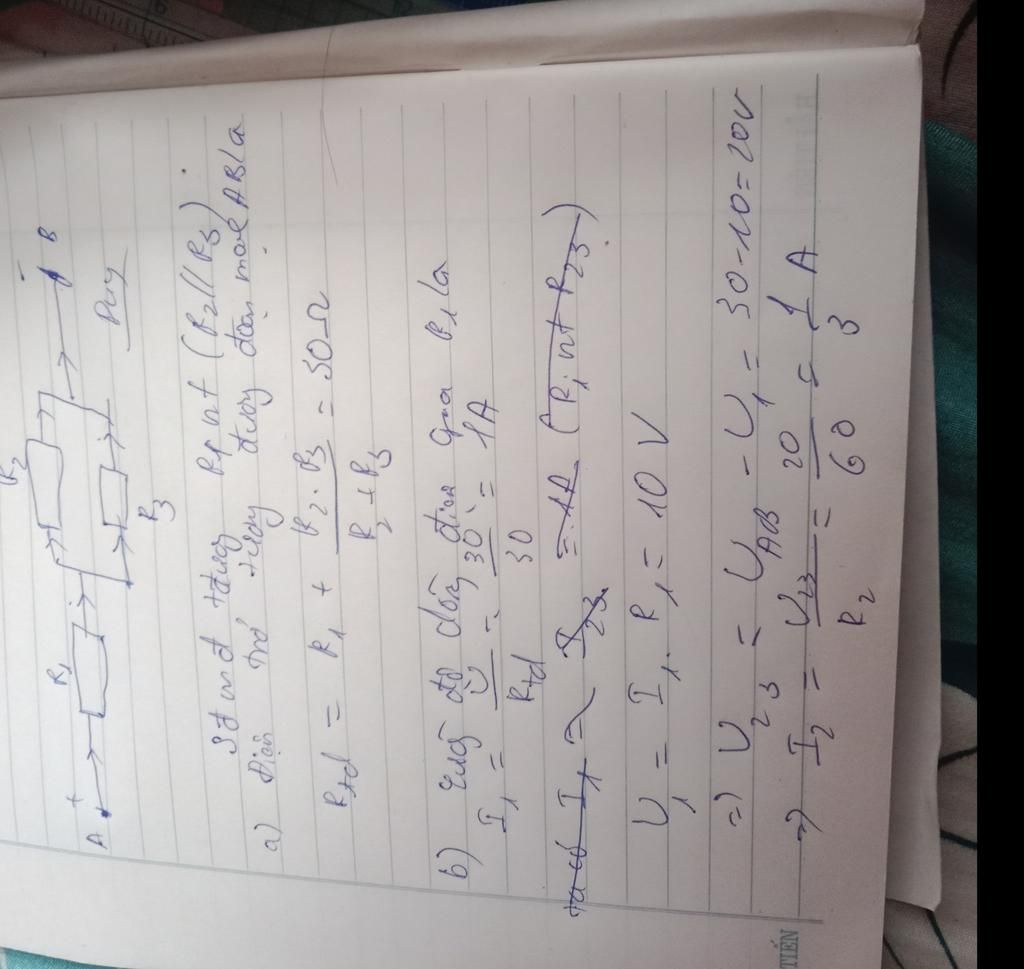 R2
+ R1 -
A B
R3
R1 nt (R2//R3)
a) Điện trở tương đương đoạn mạch AB là
Rtđ = R1 + R2.R3 / R2+R3 = 30Ω
b) độ dòng điện qua R1 là
I1 = U / Rtđ = 30 / 30 = 1A
I1 = I23 = 1A (R1 nt R23)
U1 = I1.R1 = 10V
=> U23 = UAB - U1 = 30-10=20V
=> I2 = U23 / R2 = 20 / 60 = 1 / 3 A
TIẾN